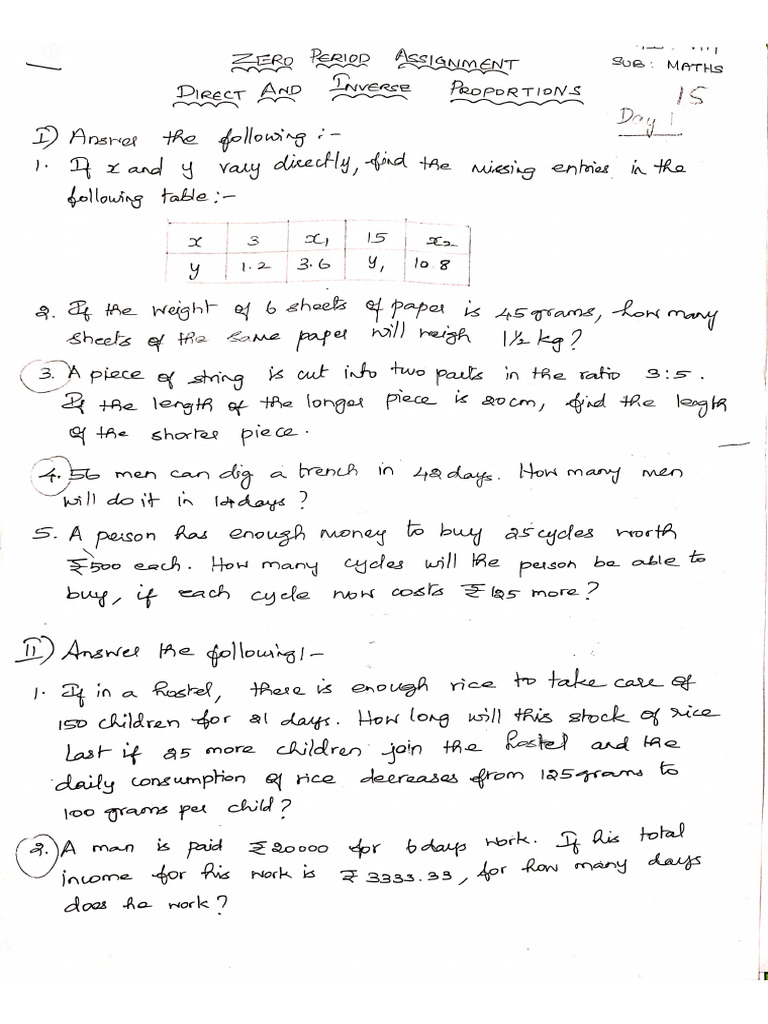 ZERO PERIOD ASSIGNMENT
SUB: MATHS
DIRECT AND INVERSE PROPORTIONS
15
Day 1
I) Answer the following :-
1. If x and y vary directly, find the missing entries in the
following table :-
x 3 x₁ 15 x₂
y 1.2 3.6 y₁ 10.8
2. If the weight of 6 sheets of paper is 45 grams, how many
sheets of the same paper will weigh 1½ kg?
3. A piece of string is cut into two parts in the ratio 3:5.
If the length of the longer piece is 20cm, find the length
of the shorter piece.
4. 56 men can dig a trench in 42 days. How many men
will do it in 14 days?
5. A person has enough money to buy 25 cycles worth
₹500 each. How many cycles will the person be able to
buy, if each cycle now costs ₹125 more?
II) Answer the following :-
1. If in a hostel, there is enough rice to take care of
150 children for 21 days. How long will this stock of rice
Last if 25 more children join the hostel and the
daily consumption of rice decreases from 125 grams to
100 grams per child?
2. A man is paid ₹20000 for 6 days work. If his total
income for his work is ₹3333.33, for how many days
does he work?